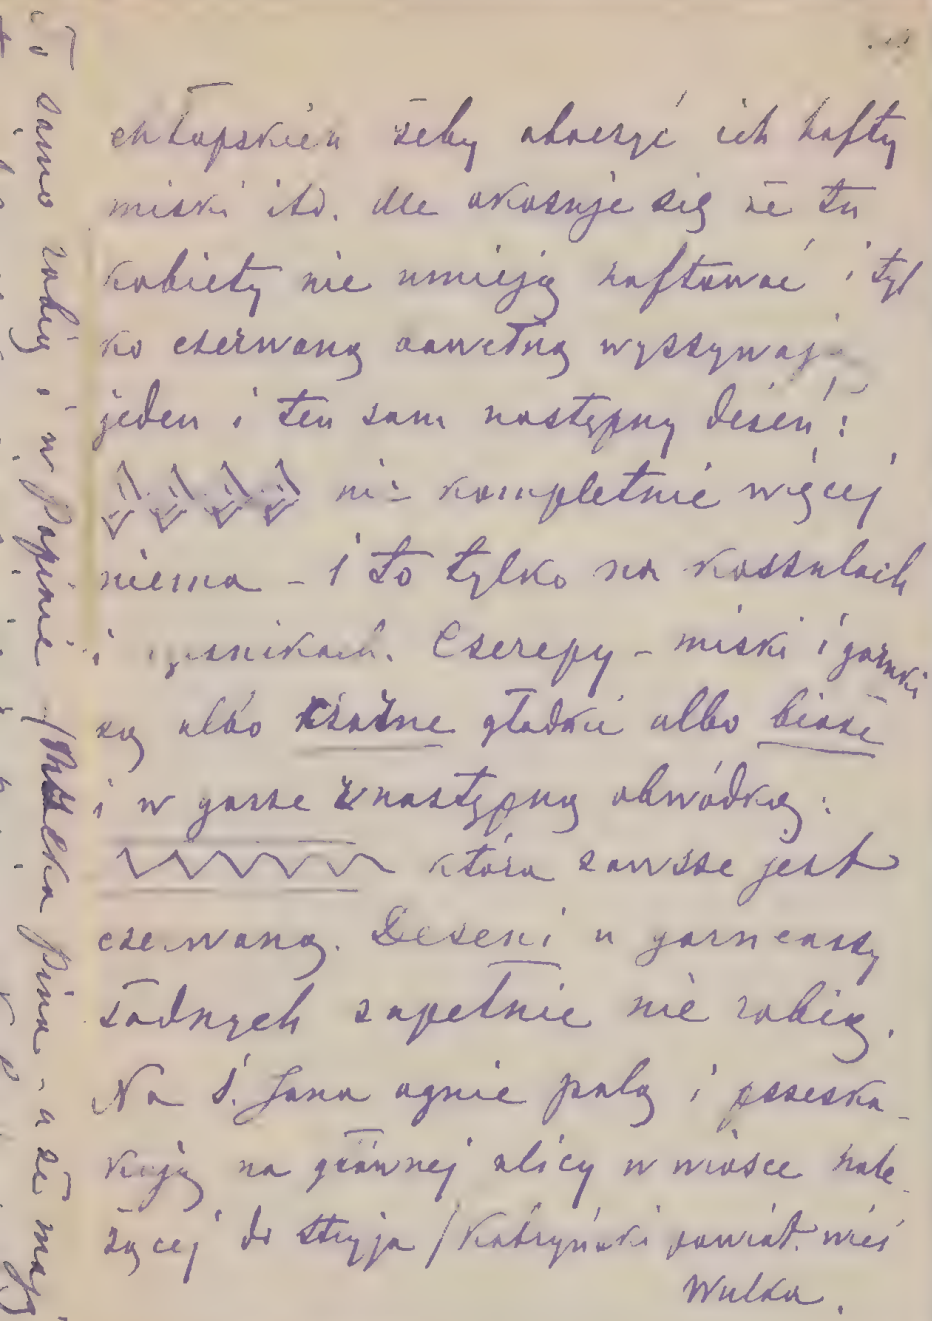 chłopskich żeby obaczyć ich hafty
miski itd. Ale okazuje się że tu
kobiety nie umieją haftować i tyl
ko czerwoną bawełną wyszywają
jeden i ten sam następny deseń:
nic kompletnie więcej
niema – i to tylko na koszulach
i ręcznikach. Czerepy – miski i garnki
są albo czarne gładkie albo białe
i w górze z następną obwódką:
która zawsze jest
czerwoną. Deseni u garncarzy
żadnych zupełnie nie robią.
Na Ś. Jana ognie palą i przeska-
kują na głównej ulicy w wiosce nale-
żącej do stryja / Kobryński powiat. wieś
Wulka.
To samo robią i w Popinie / Wulka Pina – a że mają